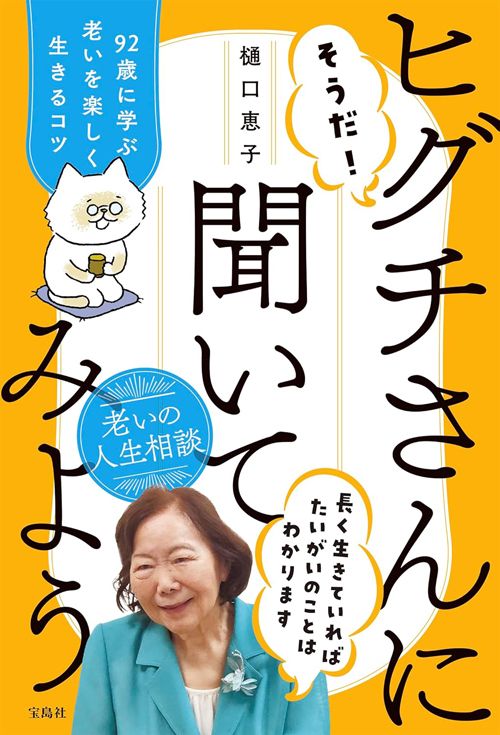 そうだ！
ヒグチさんに
聞いて
みよう
樋口恵子
92歳に学ぶ
老いを楽しく
生きるコツ
老いの
人生相談
長く生きていれば
たいがいのことは
わかります
宝島社